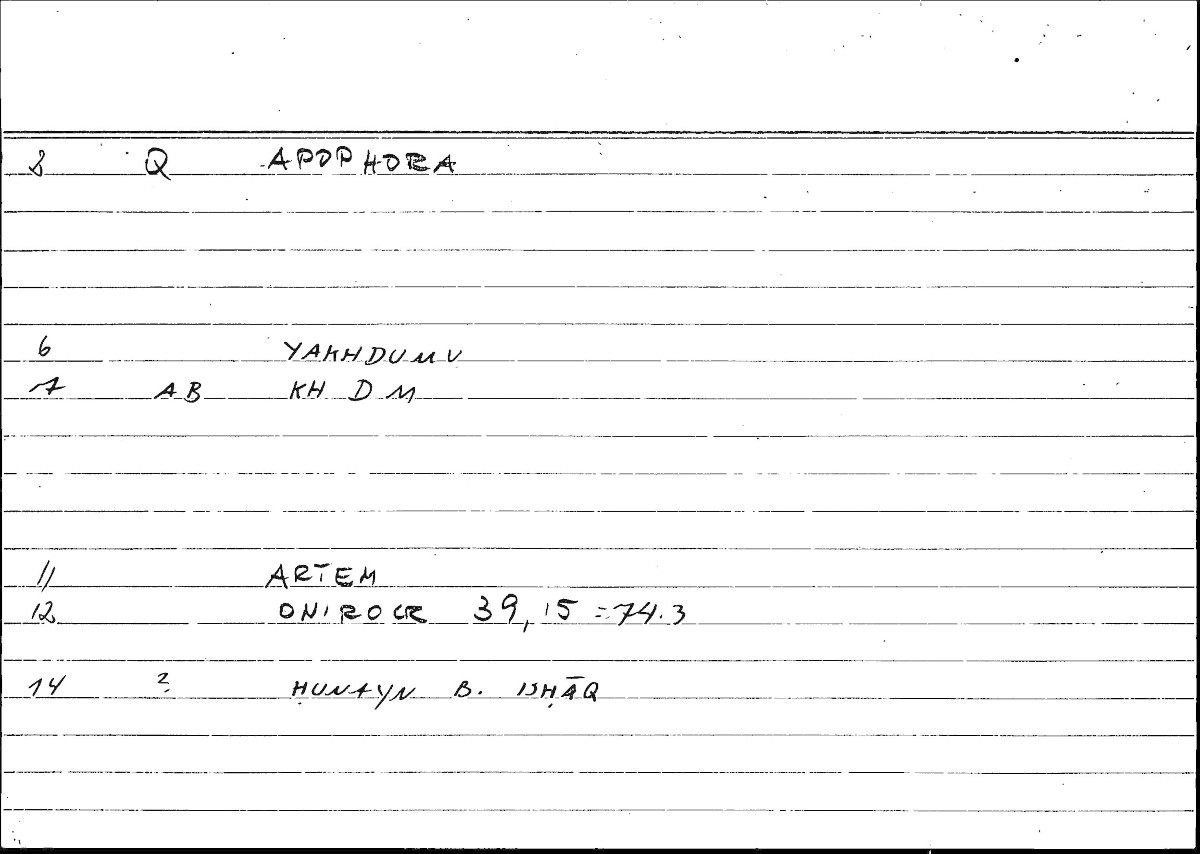 2 Q APOPHORA
6 YAKHDUMU
7 AB KH D M
11 ARTEM
12 ONIROCR 39,15 = 74.3
14 ? ḤUNAYN B. ISḤĀQ